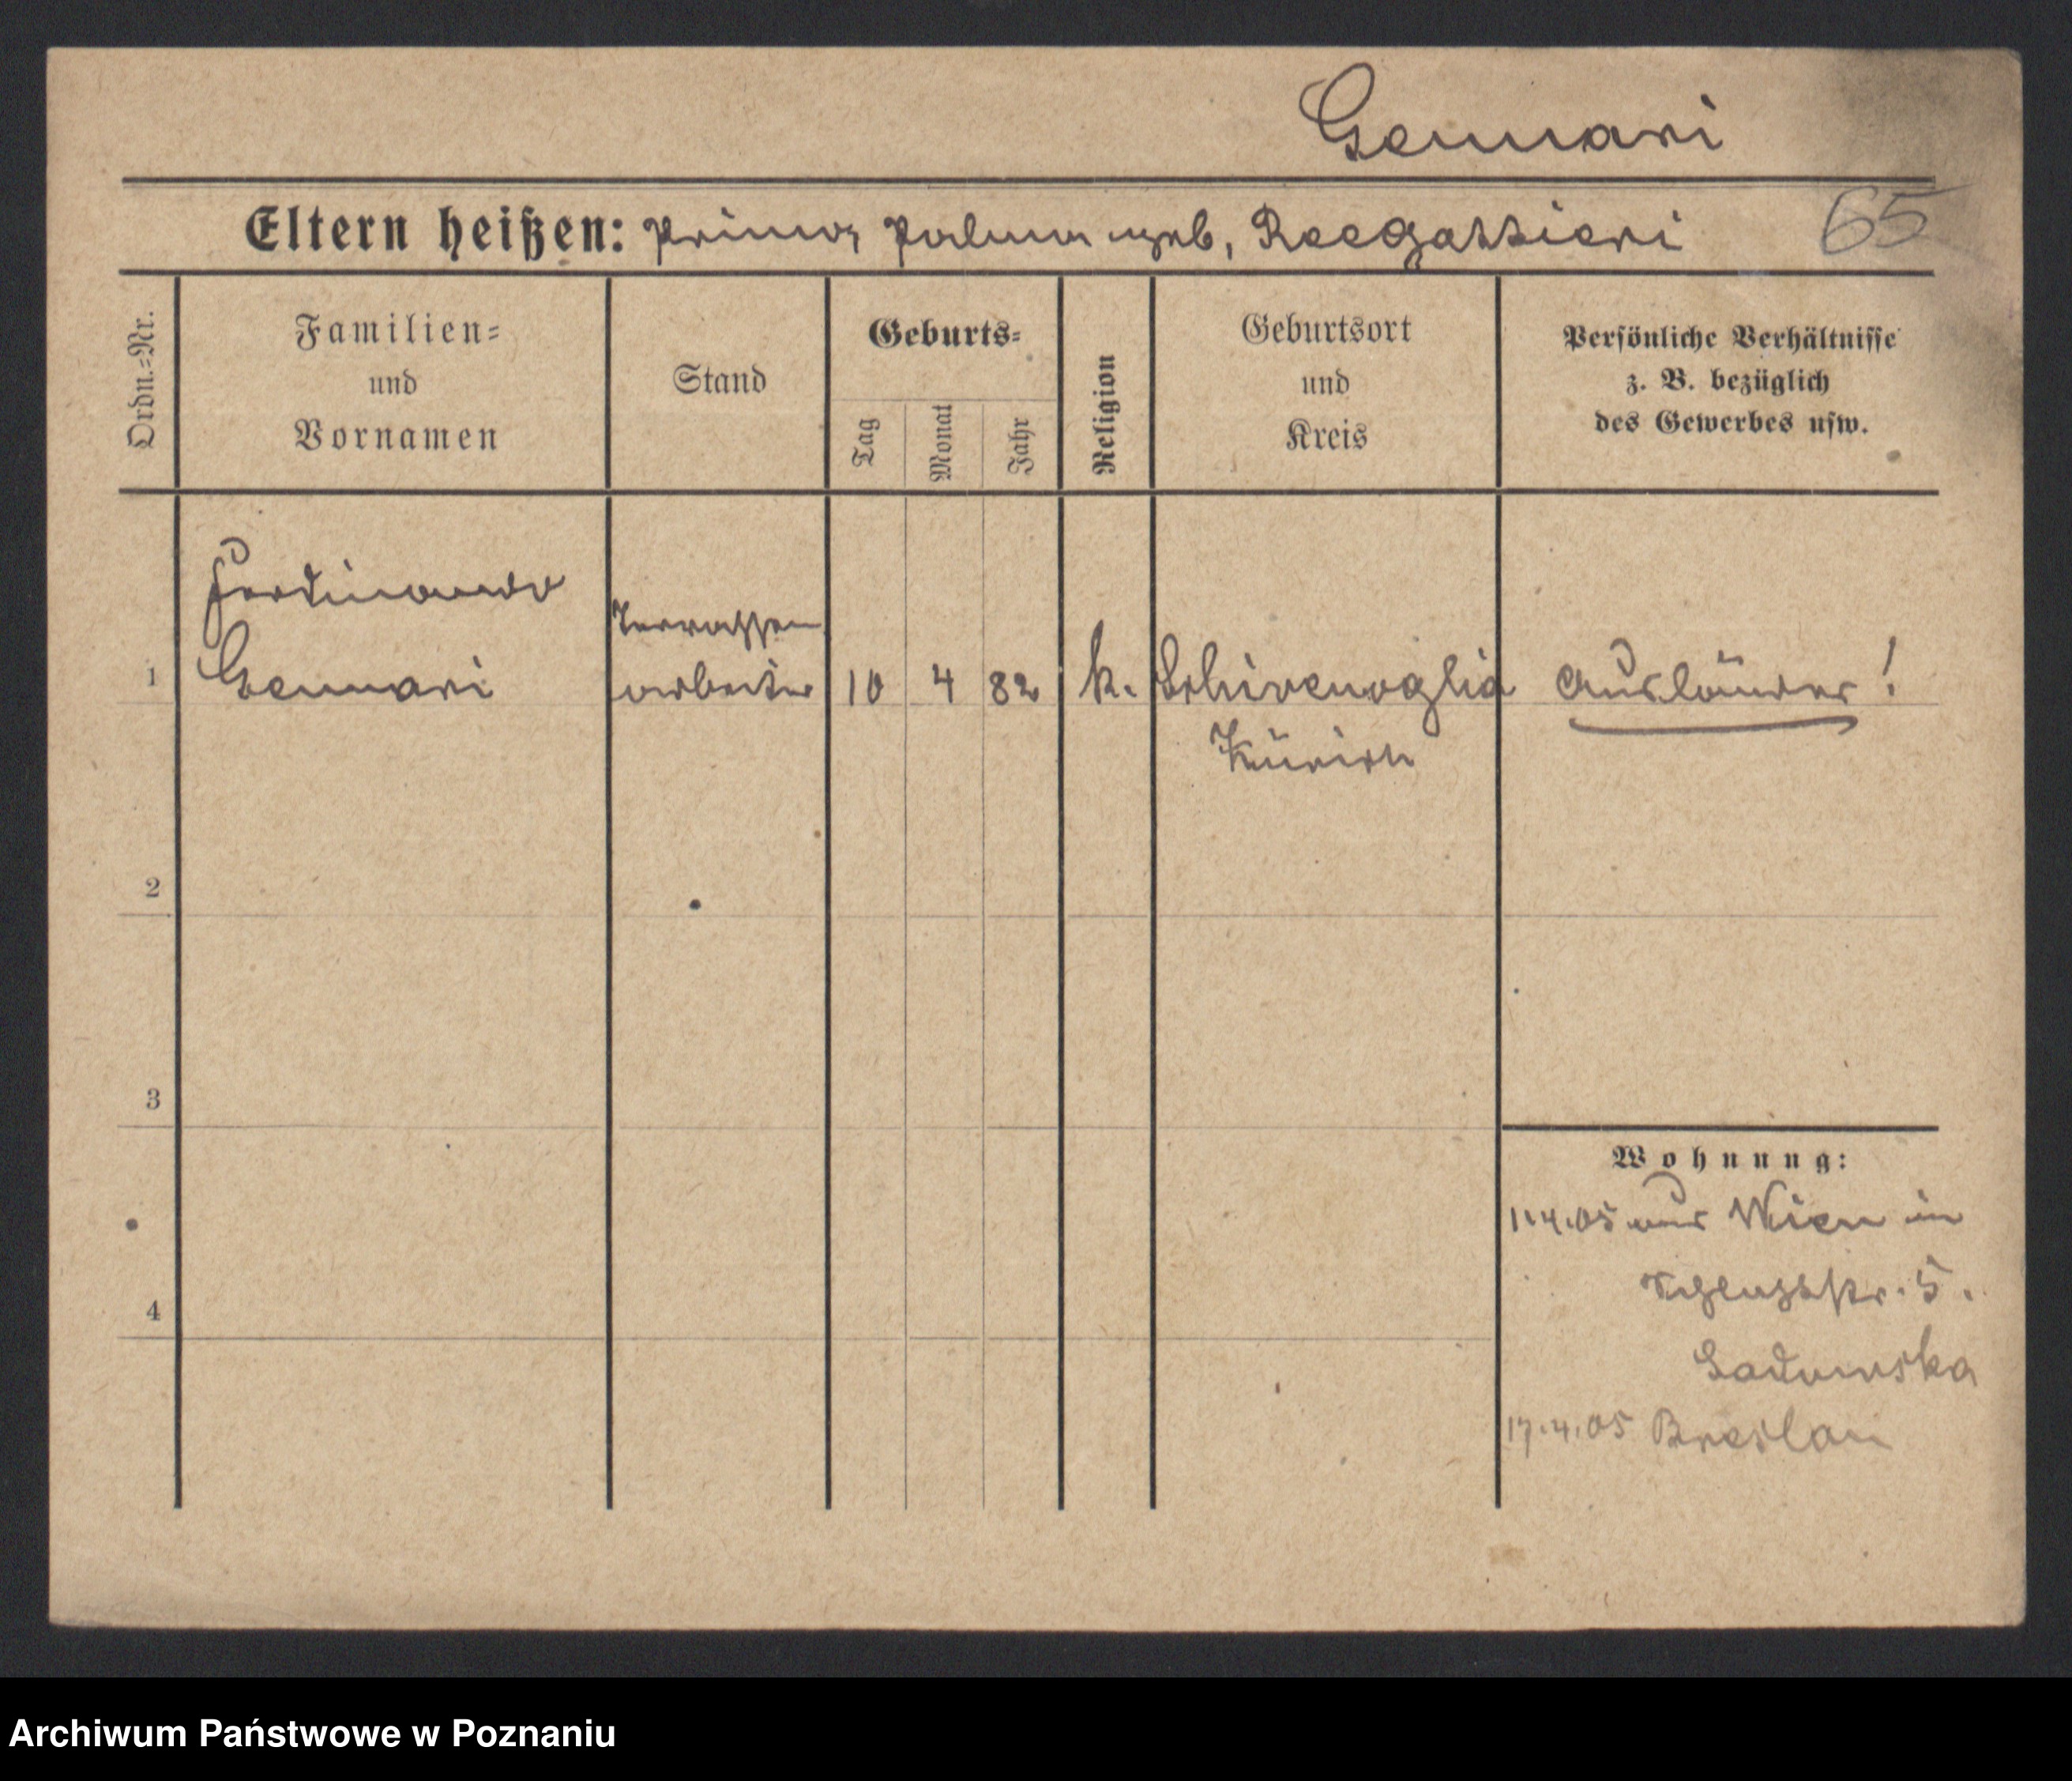 Gennari
Eltern heißen: Primo, Palma geb. Reegattieri
65
Ordn.=Nr.
Familien=
und
Vornamen
Stand
Geburts=
Tag
Monat
Jahr
Religion
Geburtsort
und
Kreis
Persönliche Verhältnisse
z. B. bezüglich
des Gewerbes usw.
1
Ferdinando
Gennari
Terrassen
arbeiter
10 4 82
k.
Schivenoglia
Ausländer!
2
3
4
Wohnung:
1.4.05 aus Wien in
5.
Sadowska
17.4.05 Breslau
Archiwum Państwowe w Poznaniu